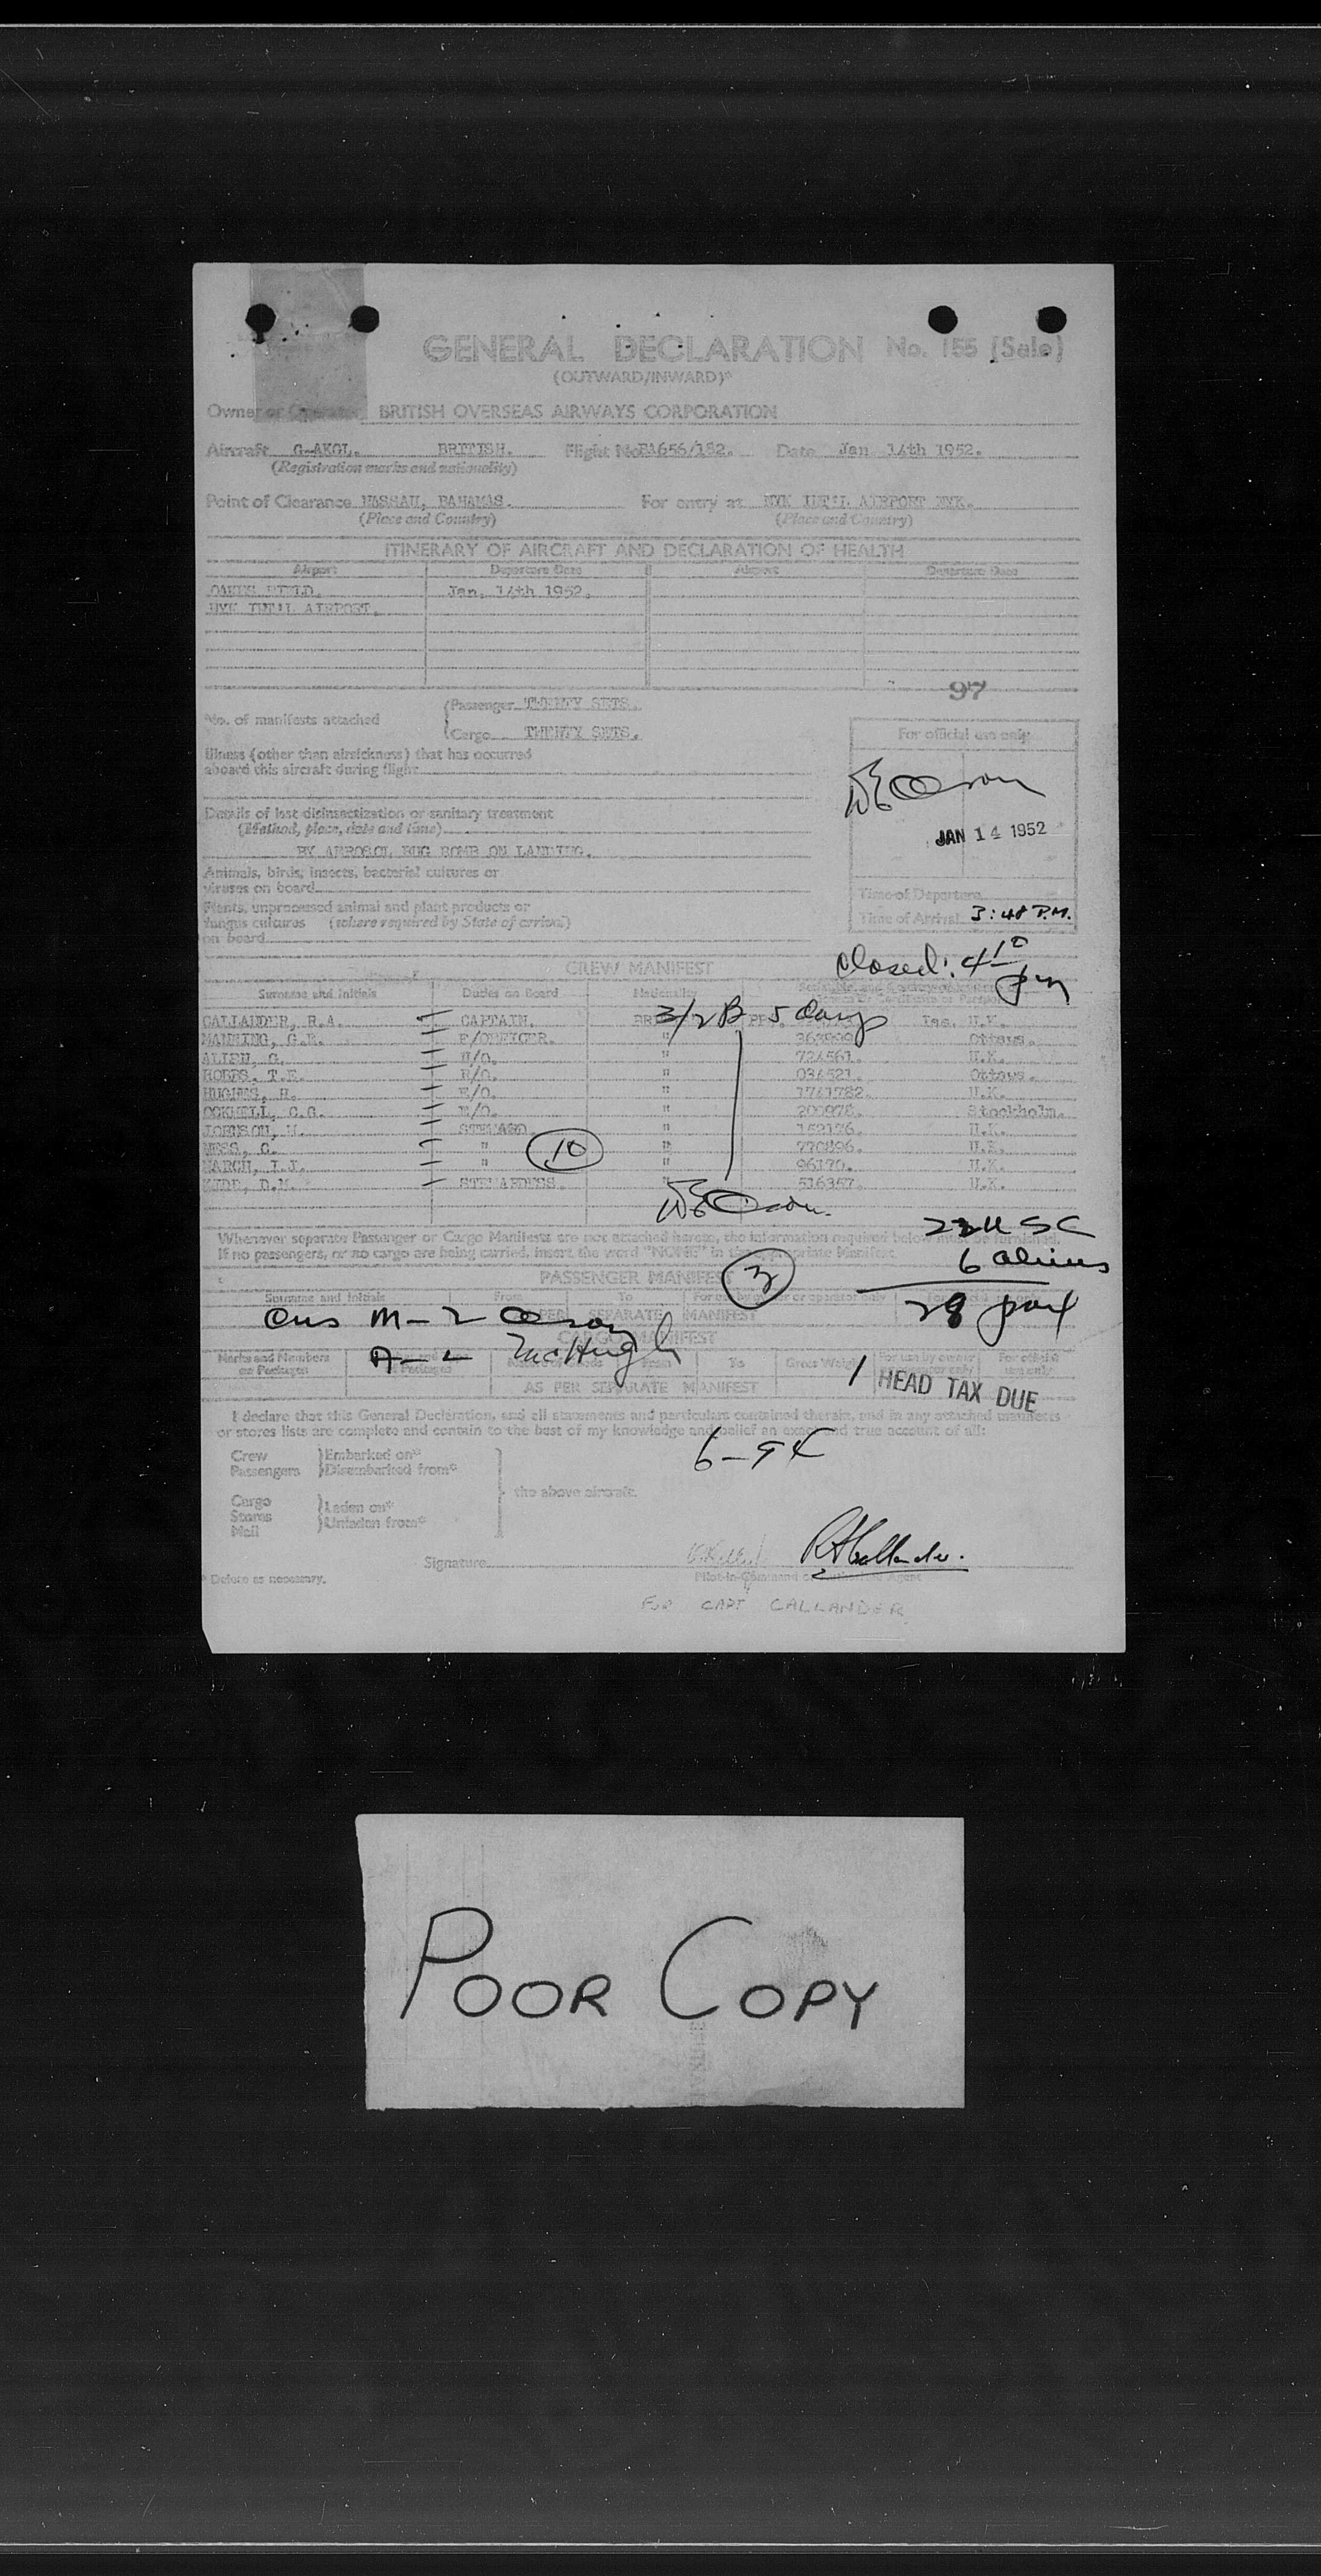 GENERAL DECLARATION No. 155 (Sale)
(OUTWARD/INWARD)*
Owner or Operator BRITISH OVERSEAS AIRWAYS CORPORATION
Aircraft G-AKGL. BRITISH. Flight No. Date Jan 14th 1952.
(Registration marks and nationality)
Point of Clearance NASSAU, BAHAMAS. For entry at NYK INT'L AIRPORT NYK.
(Place and Country) (Place and Country)
ITINERARY OF AIRCRAFT AND DECLARATION OF HEALTH
Airport Departure Date Airport Departure Date
OAKES FIELD. Jan. 14th 1952.
NYK INT'L AIRPORT.
97
No. of manifests attached
Passenger TWENTY SETS.
Cargo TWENTY SETS.
For official use only
Illness (other than airsickness) that has occurred
aboard this aircraft during flight
Details of last disinsectization or sanitary treatment
(Method, place, date and time)
JAN 14 1952
BY AEROSOL BUG BOMB ON LANDING.
Animals, birds, insects, bacterial cultures or
viruses on board
Time of Departure
Plants, unprocessed animal and plant products or
fungus cultures (where required by State of arrival)
on board
Time of Arrival 3:48 P.M.
Closed: 4 10 pm
CREW MANIFEST
Surname and Initials Duties on Board Nationality
3/2 B 5 days
CALLANDER, R.A. CAPTAIN. Iss. U.K.
MANNING, G.R. F/OFFICER. " 363999 Ottawa.
ALLEN, G. N/O. " 724561. U.K.
HOBBS, T.E. R/O. " 034521. Ottawa.
HUGHES, H. E/O. " 1741782. U.K.
OCKWELL, C.G. E/O. " 200978. Stockholm.
JOHNSON, W. STEWARD. " 152176. U.K.
NESS, C. " " 770896. U.K.
MARCH, I.J. " " 96170. U.K.
JUDD, D.M. STEWARDESS. " 516357. U.K.
10
22 U S C
6 aliens
28 pax
Whenever separate Passenger or Cargo Manifests are not attached hereto, the information required below must be furnished.
If no passengers, or no cargo are being carried, insert the word "NONE" in the appropriate Manifest.
PASSENGER MANIFEST
3
Surname and Initials From To For use by owner or operator only
AS PER SEPARATE MANIFEST
Cus M - 2 Olson
CARGO MANIFEST
A - 2 McHugh
Marks and Numbers on Packages From To Gross Weight For use by owner or operator only For official use only
AS PER SEPARATE MANIFEST
1 HEAD TAX DUE
I declare that this General Declaration, and all statements and particulars contained therein, and in any attached manifests
or stores lists are complete and contain to the best of my knowledge and belief an exact and true account of all:
Crew Embarked on*
Passengers Disembarked from*
the above aircraft.
Cargo
Stores
Mail
Laden on*
Unladen from*
Signature RACallander.
Pilot-in-Command or Authorised Agent
* Delete as necessary.
FOR CAPT CALLANDER
POOR COPY